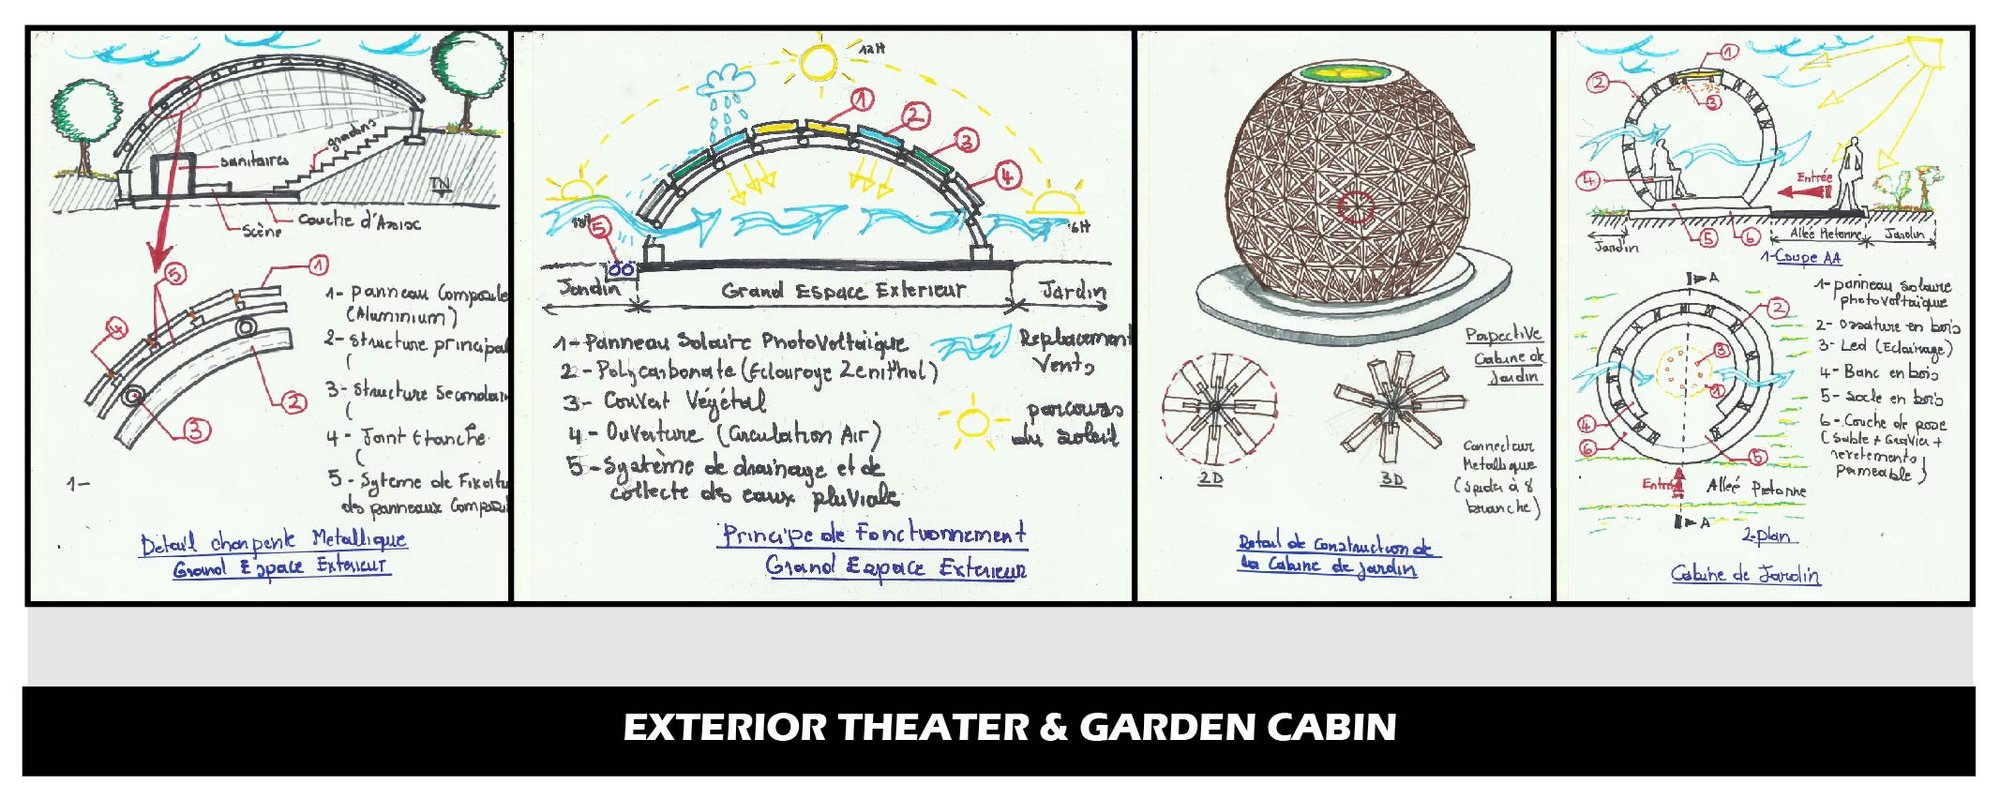 sanitaires
gradins
TN
Scène
couche d'Assise
1
5
4
2
3
1- panneau Composite
(Aluminium)
2- structure principal
(
3- Structure Secondair
(
4- Joint Etanche
(
5- Sytème de Fixati
des panneaux Composi
1-
Detail charpente Metallique
Grand Espace Exterieur
12H
1
2
3
4
18H
5
16H
Jardin
Grand Espace Exterieur
Jardin
1- Panneau Solaire PhotoVoltaique
2- Polycarbonate (Eclairage Zenithal)
3- Couvert Végétal
4- Ouverture (Circulation Air)
5- Système de drainage et de
collecte des eaux pluviale
Replacement
Vents
parcours
du soleil
Principe de Fonctionnement
Grand Espace Exterieur
Perpective
Cabine de
Jardin
2D
3D
Connecteur
Metallique
(spider à 8
branche)
Detail de Construction de
la Cabine de jardin
1
2
3
4
Entrée
5
6
Jardin
Alleé Pietonne
Jardin
1-Coupe AA
A
2
3
1
4
6
5
Entrée
Alleé Pietonne
A
2-plan
1- panneau solaire
photoVoltaïque
2- ossature en bois
3- Led (Eclairage)
4- Banc en bois
5- socle en bois
6- Couche de pose
(sable + Gravier +
revetements
permeable)
Cabine de Jardin
EXTERIOR THEATER & GARDEN CABIN